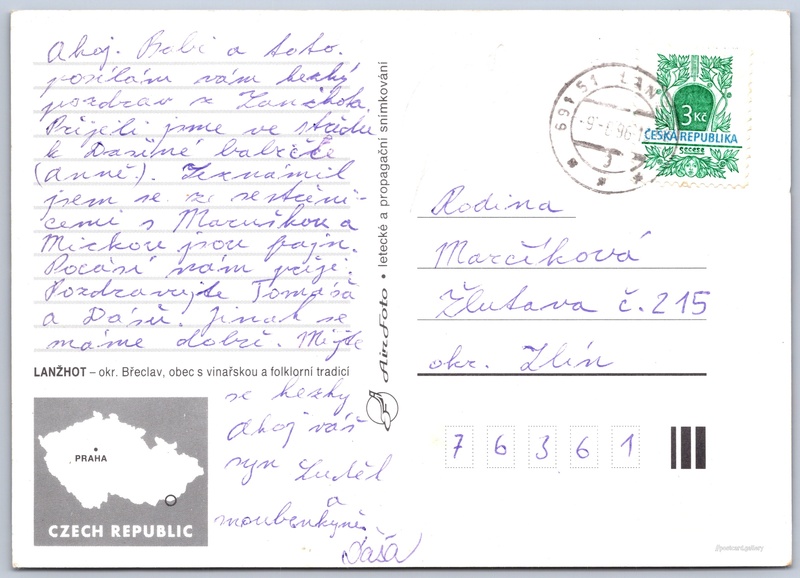 Ahoj. Babi a toto.
posílám vám hezký
pozdrav z Lanžhota.
Přijeli jsme ve středu
k Dašiné babičce
(Anně). Seznámil
jsem se ze sestřéni-
cemi s Maruškou a
Mickou jsou fajn.
Počasí nám přeje.
Pozdravujte Tomáše
a Dášu. Jinak se
máme dobře. Mějte
se hezky
Ahoj váš
syn Luděk
a
Daša
LANŽHOT – okr. Břeclav, obec s vinařskou a folklorní tradicí
PRAHA
CZECH REPUBLIC
Airfoto • letecké a propagační snímkování
691 51 LAN
3
3 Kč
ČESKÁ REPUBLIKA
secese
Rodina
Marčíková
Žlutava č. 215
okr. Zlín
76361